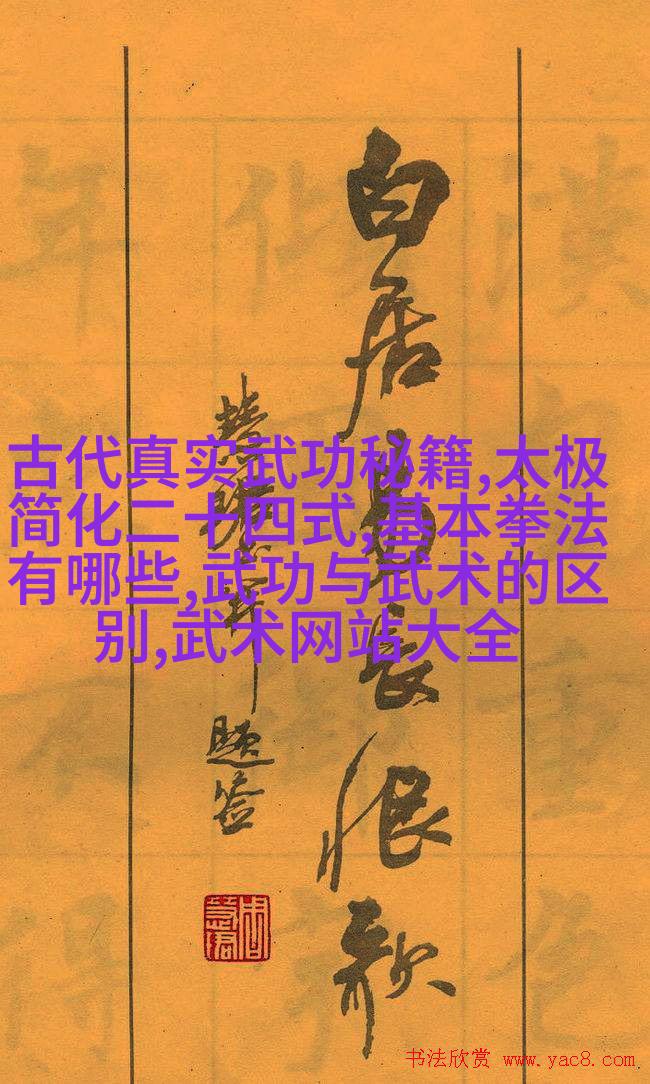 白居易長恨歌
题签
古代真实武功秘籍,太极
简化二十四式,基本拳法
有哪些,武功与武术的区
别,武术网站大全
书法欣赏 www.yac8.com